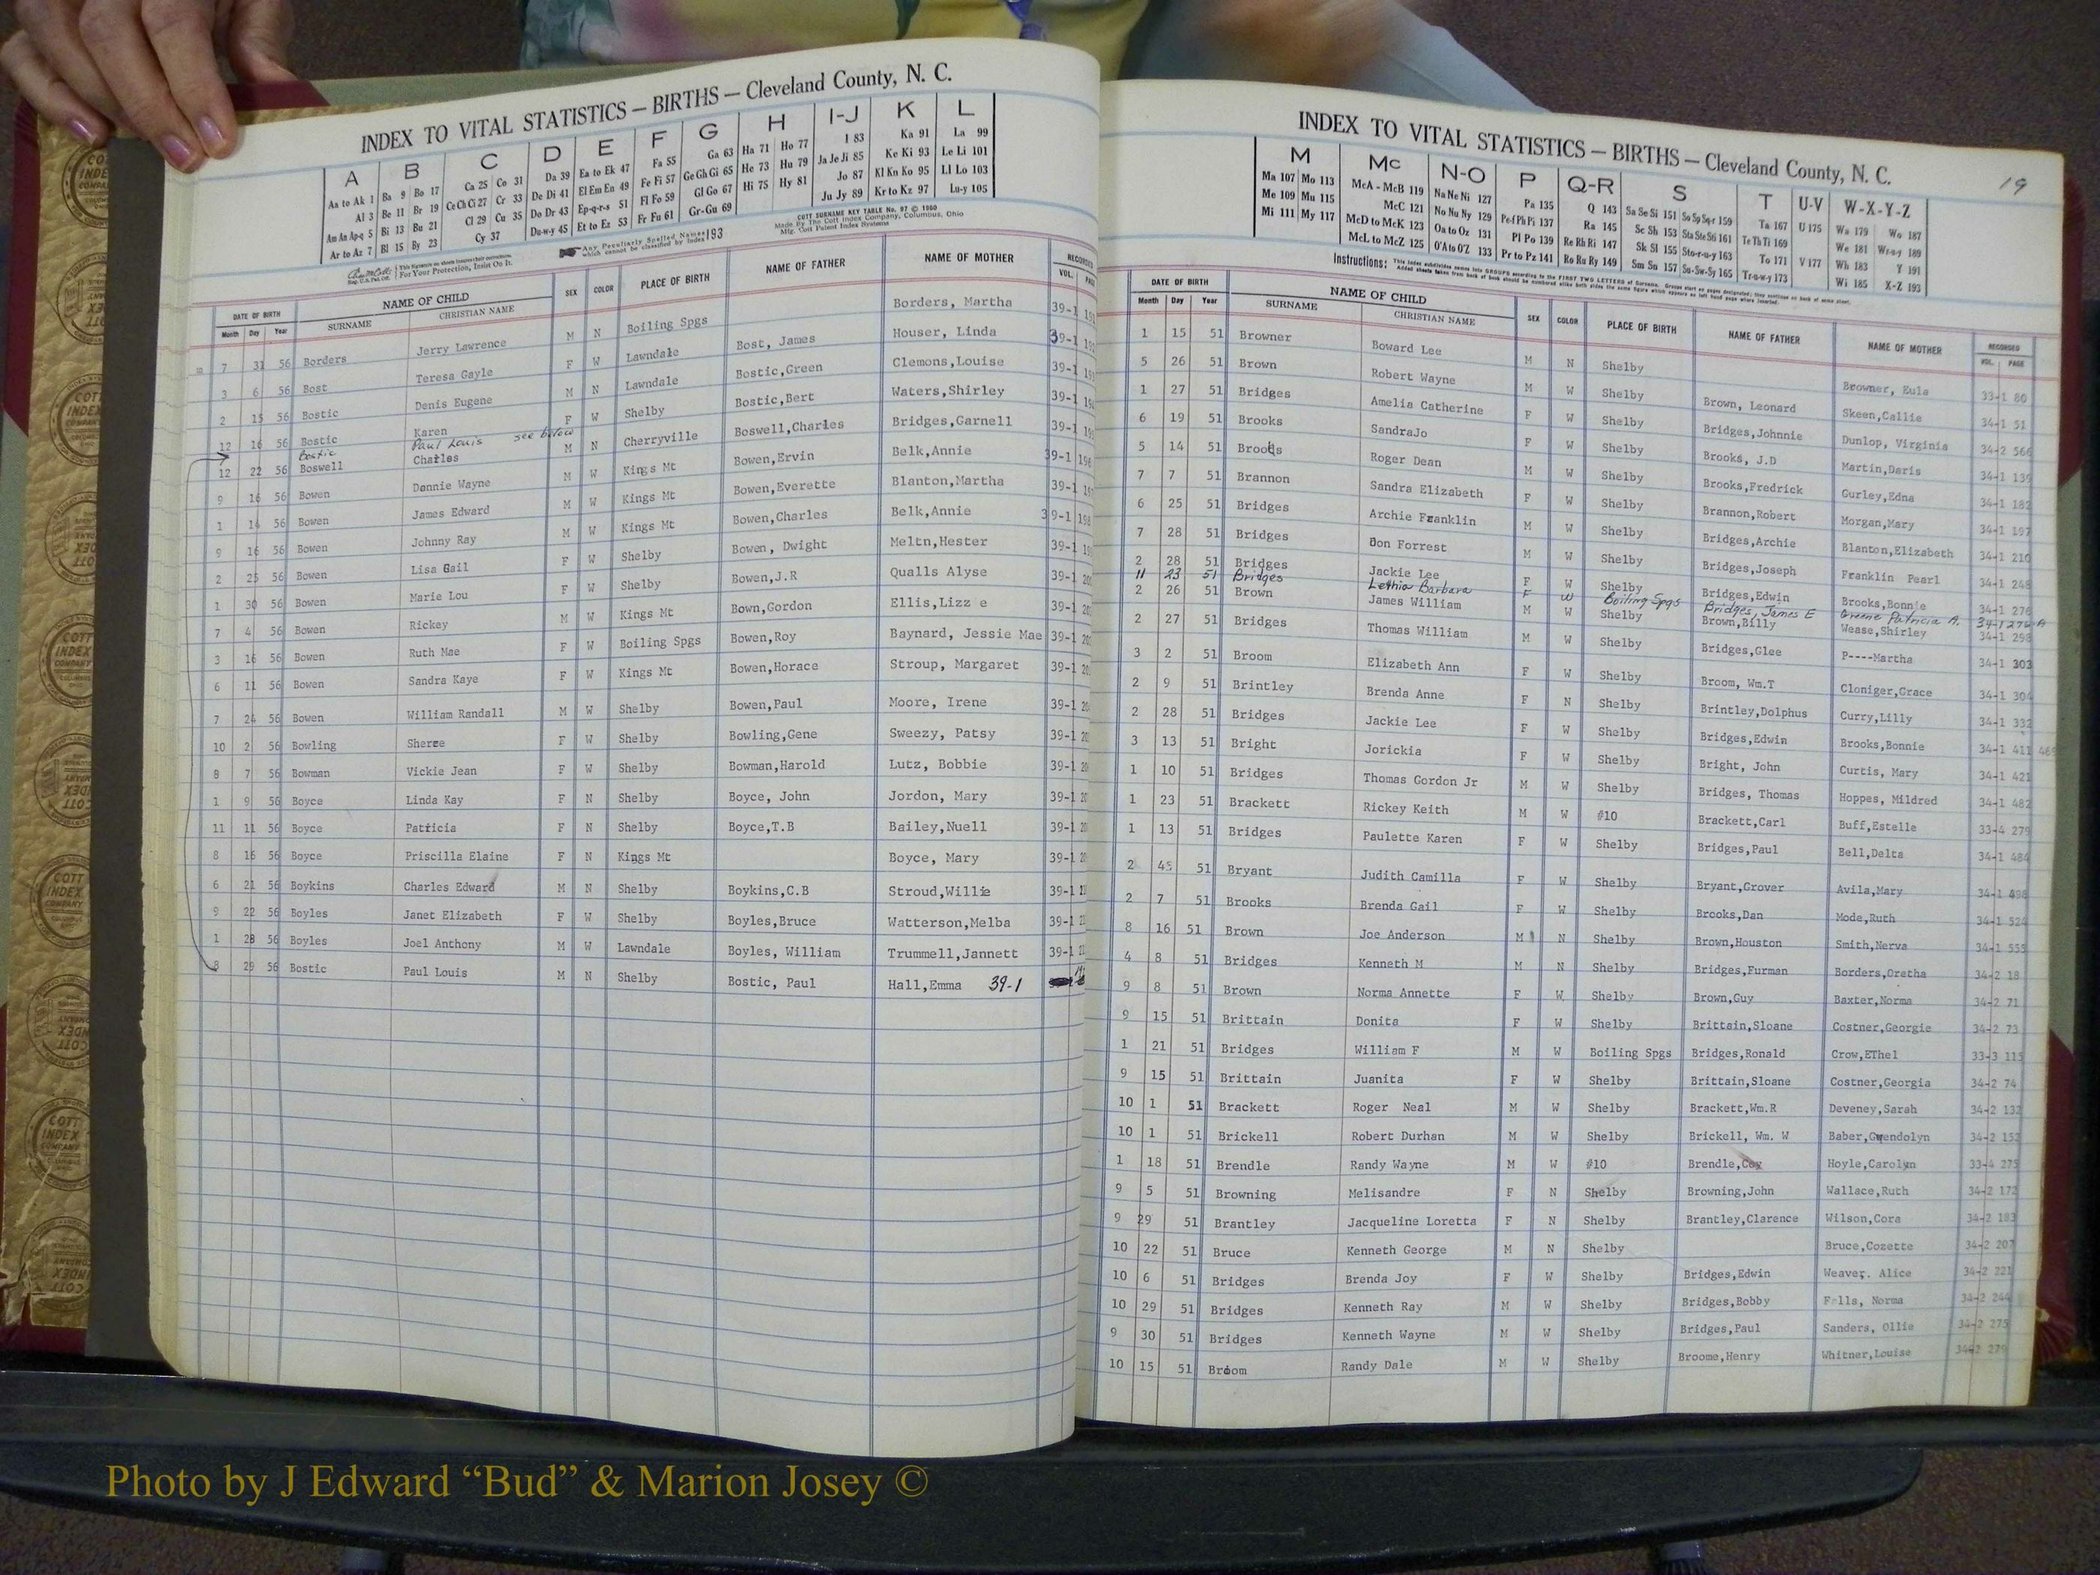 INDEX TO VITAL STATISTICS — BIRTHS — Cleveland County, N. C.
A B C D E F G H I-J K L
Aa to Ak 1 Ba 9 Bo 17 Ca 25 Co 31 Da 39 Ea to Ek 47 Fa 55 Ga 63 Ha 71 Ho 77 I 83 Ka 91 La 99
Al 3 Be 11 Br 19 Ce Ch Ci 27 Cr 33 De Di 41 El Em En 49 Fe Fi 57 Ge Gh Gi 65 He 73 Hu 79 Ja Je Ji 85 Ke Ki 93 Le Li 101
Am An Ap-q 5 Bi 13 Bu 21 Cl 29 Cu 35 Do Dr 43 Ep-q-r-s 51 Fl Fo 59 Gl Go 67 Hi 75 Hy 81 Jo 87 Kl Kn Ko 95 Ll Lo 103
Ar to Az 7 Bl 15 By 23 Cy 37 Du-w-y 45 Et to Ez 53 Fr Fu 61 Gr-Gu 69 Ju Jy 89 Kr to Kz 97 Lu-y 105
This Signature on sheets insures their correctness.
For Your Protection, Insist On It.
Any Peculiarly Spelled Names which cannot be classified by Index 193
COTT SURNAME KEY TABLE No. 97 © 1960
Made By The Cott Index Company, Columbus, Ohio
Mfg. Cott Patent Index Systems
DATE OF BIRTH NAME OF CHILD SEX COLOR PLACE OF BIRTH NAME OF FATHER NAME OF MOTHER RECORDED
Month Day Year SURNAME CHRISTIAN NAME VOL.
7 31 56 Borders Jerry Lawrence M N Boiling Spgs Borders, Martha 39-1
3 6 56 Bost Teresa Gayle F W Lawndale Bost, James Houser, Linda 39-1
2 15 56 Bostic Denis Eugene M N Lawndale Bostic,Green Clemons,Louise 39-1
12 16 56 Bostic Karen F W Shelby Bostic,Bert Waters,Shirley 39-1
Bostic Paul Louis see below
12 22 56 Boswell Charles M N Cherryville Boswell,Charles Bridges,Garnell 39-1
9 16 56 Bowen Donnie Wayne M W Kings Mt Bowen,Ervin Belk,Annie 39-1 196
1 14 56 Bowen James Edward M W Kings Mt Bowen,Everette Blanton,Martha 39-1
9 16 56 Bowen Johnny Ray M W Kings Mt Bowen,Charles Belk,Annie 39-1 198
2 25 56 Bowen Lisa Gail F W Shelby Bowen, Dwight Meltn,Hester 39-1
1 30 56 Bowen Marie Lou F W Shelby Bowen,J.R Qualls Alyse 39-1
7 4 56 Bowen Rickey M W Kings Mt Bown,Gordon Ellis,Lizz e 39-1
3 16 56 Bowen Ruth Mae F W Boiling Spgs Bowen,Roy Baynard, Jessie Mae 39-1
6 11 56 Bowen Sandra Kaye F W Kings Mt Bowen,Horace Stroup, Margaret 39-1
7 24 56 Bowen William Randall M W Shelby Bowen,Paul Moore, Irene 39-1
10 2 56 Bowling Sheree F W Shelby Bowling,Gene Sweezy, Patsy 39-1
8 7 56 Bowman Vickie Jean F W Shelby Bowman,Harold Lutz, Bobbie 39-1
1 9 56 Boyce Linda Kay F N Shelby Boyce, John Jordon, Mary 39-1
11 11 56 Boyce Patricia F N Shelby Boyce,T.B Bailey,Nuell 39-1
8 16 56 Boyce Priscilla Elaine F N Kings Mt Boyce, Mary 39-1
6 21 56 Boykins Charles Edward M N Shelby Boykins,C.B Stroud,Willie 39-1
9 22 56 Boyles Janet Elizabeth F W Shelby Boyles,Bruce Watterson,Melba 39-1
1 28 56 Boyles Joel Anthony M W Lawndale Boyles, William Trummell,Jannett 39-1
8 29 56 Bostic Paul Louis M N Shelby Bostic, Paul Hall,Emma 39-1
INDEX TO VITAL STATISTICS — BIRTHS — Cleveland County, N. C.
19
M Mc N-O P Q-R S T U-V W-X-Y-Z
Ma 107 Mo 113 McA - McB 119 Na Ne Ni 127 Pa 135 Q 143 Sa Se Si 151 So Sp Sq-r 159 Ta 167 U 175 Wa 179 Wo 187
Me 109 Mu 115 McC 121 No Nu Ny 129 Pe-f Ph Pi 137 Ra 145 Sc Sh 153 Sta Ste Sti 161 Te Th Ti 169 We 181 Wr-u-y 189
Mi 111 My 117 McD to McK 123 Oa to Oz 131 Pl Po 139 Re Rh Ri 147 Sk Sl 155 Sto-r-u-y 163 To 171 V 177 Wh 183 Y 191
McL to McZ 125 O'A to O'Z 133 Pr to Pz 141 Ro Ru Ry 149 Sm Sn 157 Su-Sw-Sy 165 Tr-u-w-y 173 Wi 185 X-Z 193
Instructions: This index subdivides names into GROUPS according to the FIRST TWO LETTERS of Surname. Groups start on pages designated; they continue on back of same sheet.
Added sheets taken from back of book should be numbered alike both sides the same figure which appears on left hand page where inserted.
DATE OF BIRTH NAME OF CHILD SEX COLOR PLACE OF BIRTH NAME OF FATHER NAME OF MOTHER RECORDED
Month Day Year SURNAME CHRISTIAN NAME VOL. PAGE
1 15 51 Browner Boward Lee M N Shelby Browner, Eula 33-1 80
5 26 51 Brown Robert Wayne M W Shelby Brown, Leonard Skeen,Callie 34-1 51
1 27 51 Bridges Amelia Catherine F W Shelby Bridges,Johnnie Dunlop, Virginia 34-2 566
6 19 51 Brooks SandraJo F W Shelby Brooks, J.D Martin,Daris 34-1 139
5 14 51 Brooks Roger Dean M W Shelby Brooks,Fredrick Gurley,Edna 34-1 182
7 7 51 Brannon Sandra Elizabeth F W Shelby Brannon,Robert Morgan,Mary 34-1 197
6 25 51 Bridges Archie Franklin M W Shelby Bridges,Archie Blanton,Elizabeth 34-1 210
7 28 51 Bridges Don Forrest M W Shelby Bridges,Joseph Franklin Pearl 34-1 248
2 28 51 Bridges Jackie Lee F W Shelby Bridges,Edwin Brooks,Bonnie 34-1 276
11 23 51 Bridges Lethia Barbara F W Boiling Spgs Bridges, James E Greene Patricia A. 34-1 276-A
2 26 51 Brown James William M W Shelby Brown,Billy Wease,Shirley 34-1 298
2 27 51 Bridges Thomas William M W Shelby Bridges,Glee P----Martha 34-1 303
3 2 51 Broom Elizabeth Ann F W Shelby Broom, Wm.T Cloniger,Grace 34-1 304
2 9 51 Brintley Brenda Anne F N Shelby Brintley,Dolphus Curry,Lilly 34-1 332
2 28 51 Bridges Jackie Lee F W Shelby Bridges,Edwin Brooks,Bonnie 34-1 411
3 13 51 Bright Jorickia F W Shelby Bright, John Curtis, Mary 34-1 421
1 10 51 Bridges Thomas Gordon Jr M W Shelby Bridges, Thomas Hoppes, Mildred 34-1 482
1 23 51 Brackett Rickey Keith M W #10 Brackett,Carl Buff,Estelle 33-4 279
1 13 51 Bridges Paulette Karen F W Shelby Bridges,Paul Bell,Delta 34-1 484
2 51 Bryant Judith Camilla F W Shelby Bryant,Grover Avila,Mary 34-1 498
2 7 51 Brooks Brenda Gail F W Shelby Brooks,Dan Mode,Ruth 34-1 524
8 16 51 Brown Joe Anderson M N Shelby Brown,Houston Smith,Nerva 34-1 555
4 8 51 Bridges Kenneth M M N Shelby Bridges,Furman Borders,Oretha 34-2 18
9 8 51 Brown Norma Annette F W Shelby Brown,Guy Baxter,Norma 34-2 71
9 15 51 Brittain Donita F W Shelby Brittain,Sloane Costner,Georgie 34-2 73
1 21 51 Bridges William F M W Boiling Spgs Bridges,Ronald Crow,EThel 33-3 115
9 15 51 Brittain Juanita F W Shelby Brittain,Sloane Costner,Georgia 34-2 74
10 1 51 Brackett Roger Neal M W Shelby Brackett,Wm.R Deveney,Sarah 34-2 132
10 1 51 Brickell Robert Durhan M W Shelby Brickell, Wm. W Baber,Gwendolyn 34-2 152
1 18 51 Brendle Randy Wayne M W #10 Brendle,Coy Hoyle,Carolyn 33-4 275
9 5 51 Browning Melisandre F N Shelby Browning,John Wallace,Ruth 34-2 172
9 29 51 Brantley Jacqueline Loretta F N Shelby Brantley,Clarence Wilson,Cora 34-2 183
10 22 51 Bruce Kenneth George M N Shelby Bruce,Cozette 34-2 207
10 6 51 Bridges Brenda Joy F W Shelby Bridges,Edwin Weaver. Alice 34-2 221
10 29 51 Bridges Kenneth Ray M W Shelby Bridges,Bobby Falls, Norma 34-2 244
9 30 51 Bridges Kenneth Wayne M W Shelby Bridges,Paul Sanders, Ollie 34-2 275
10 15 51 Broom Randy Dale M W Shelby Broome,Henry Whitner,Louise 34-2 279
Photo by J Edward “Bud” & Marion Josey ©